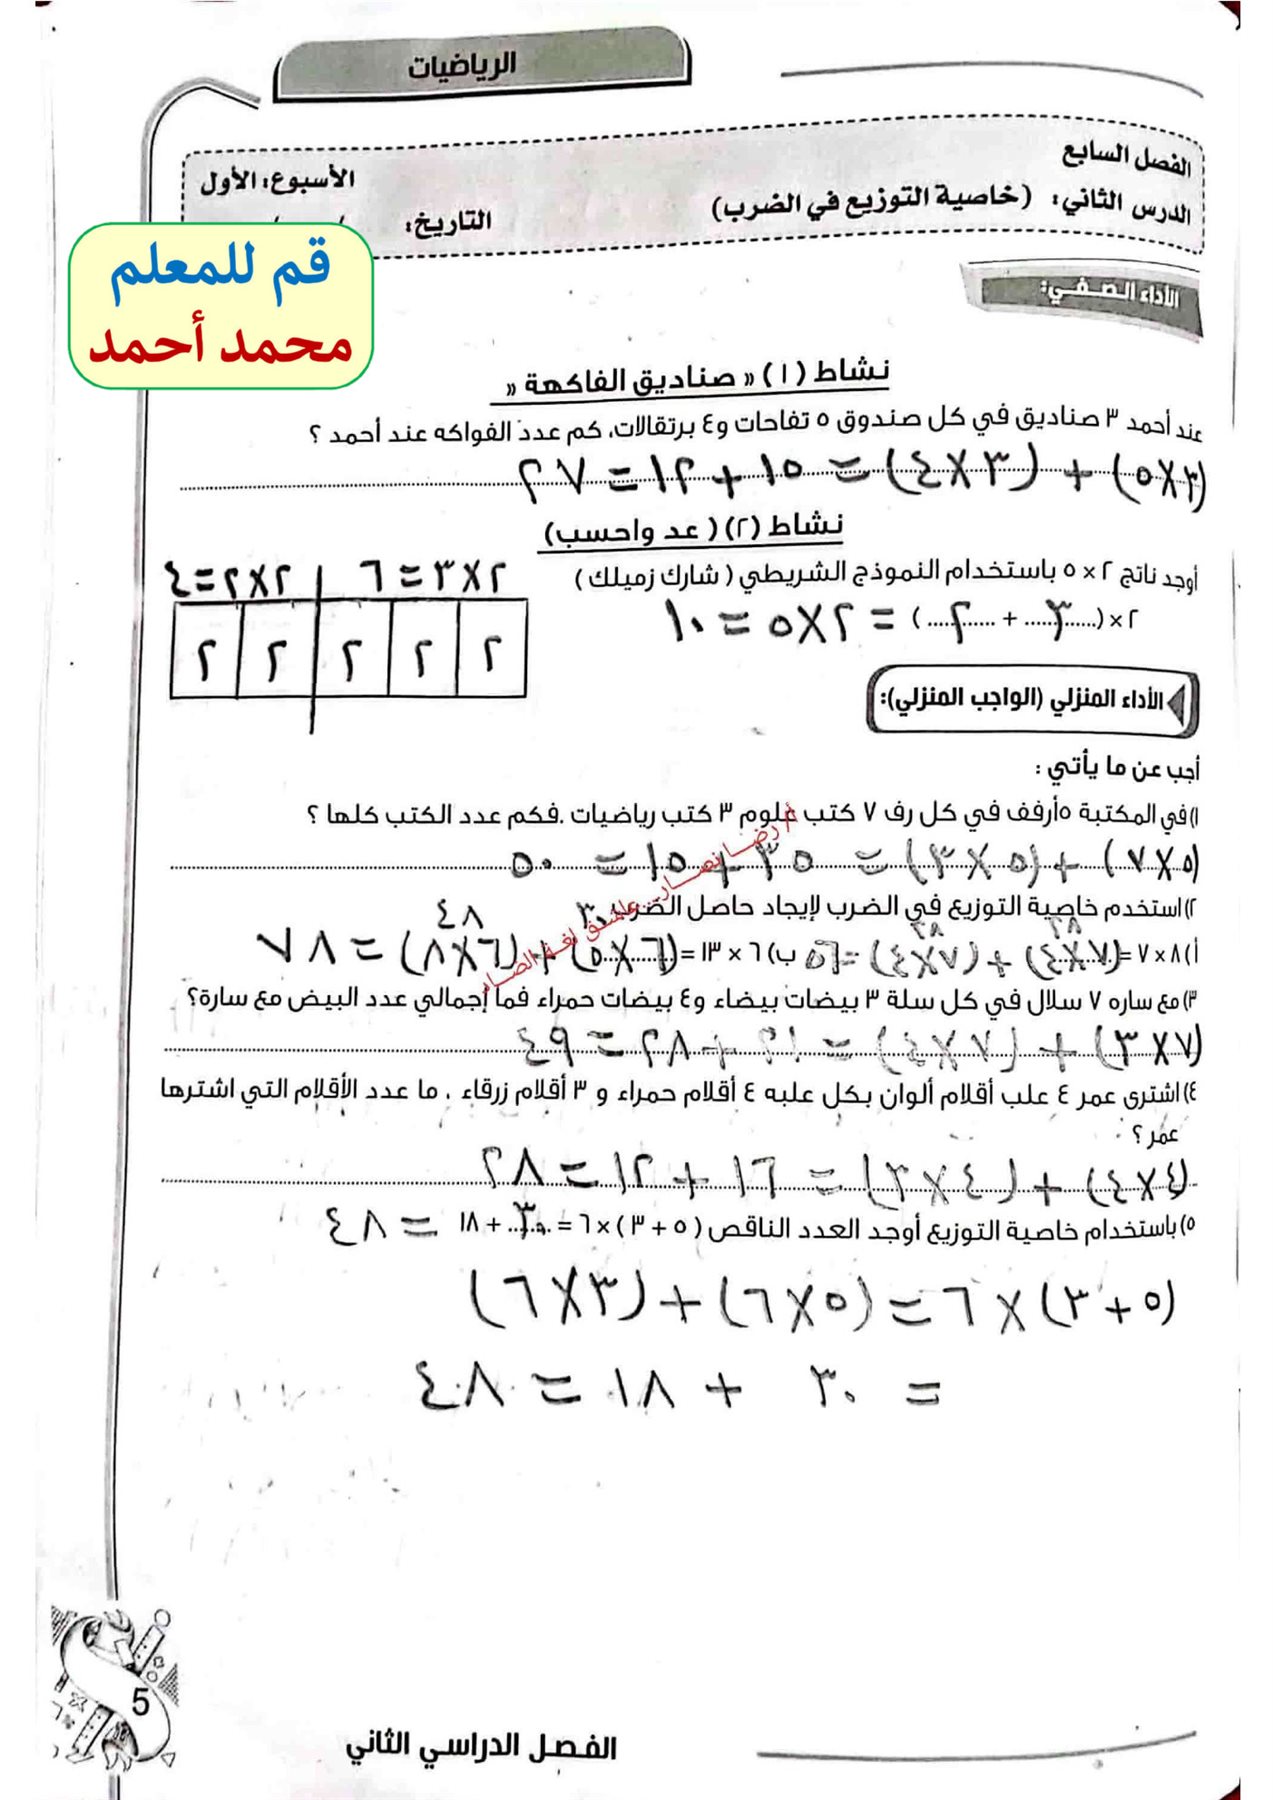 الرياضيات
الفصل السابع
الدرس الثاني: (خاصية التوزيع في الضرب)
الأسبوع: الأول
التاريخ: / /
قم للمعلم
محمد أحمد
الأداء الصفي:
نشاط (١) « صناديق الفاكهة »
عند أحمد ٣ صناديق في كل صندوق ٥ تفاحات و٤ برتقالات، كم عدد الفواكه عند أحمد ؟
(٣×٥) + (٣×٤) = ١٥ + ١٢ = ٢٧
نشاط (٢) ( عد واحسب)
أوجد ناتج ٢ × ٥ باستخدام النموذج الشريطي ( شارك زميلك )
٢ × (...٣... + ...٢...) = ٢×٥ = ١٠
٢×٣ = ٦
٢×٢ = ٤
٢ ٢ ٢ ٢ ٢
الأداء المنزلي (الواجب المنزلي):
أجب عن ما يأتي :
١) في المكتبة ٥أرفف في كل رف ٧ كتب علوم ٣ كتب رياضيات .فكم عدد الكتب كلها ؟
(٥×٧) + (٥×٣) = ٣٥ + ١٥ = ٥٠
٢) استخدم خاصية التوزيع في الضرب لإيجاد حاصل الضرب
٢٨ ٢٨ ٣٠ ٤٨
أ) ٨ × ٧ = (٧×٤) + (٧×٤) = ٥٦ ب) ٦ × ١٣ = (٦×٥) + (٦×٨) = ٧٨
٣) مع ساره ٧ سلال في كل سلة ٣ بيضات بيضاء و٤ بيضات حمراء فما إجمالي عدد البيض مع سارة؟
(٧×٣) + (٧×٤) = ٢١ + ٢٨ = ٤٩
٤) اشترى عمر ٤ علب أقلام ألوان بكل علبه ٤ أقلام حمراء و ٣ أقلام زرقاء ، ما عدد الأقلام التي اشترها
عمر ؟
(٤×٤) + (٤×٣) = ١٦ + ١٢ = ٢٨
٥) باستخدام خاصية التوزيع أوجد العدد الناقص ( ٥ + ٣ ) × ٦ = ..٣٠.. + ١٨ = ٤٨
(٥ + ٣) × ٦ = (٥×٦) + (٣×٦)
= ٣٠ + ١٨ = ٤٨
أ/ رضا نصار... عاشق لغة الضاد
5
الفصل الدراسي الثاني